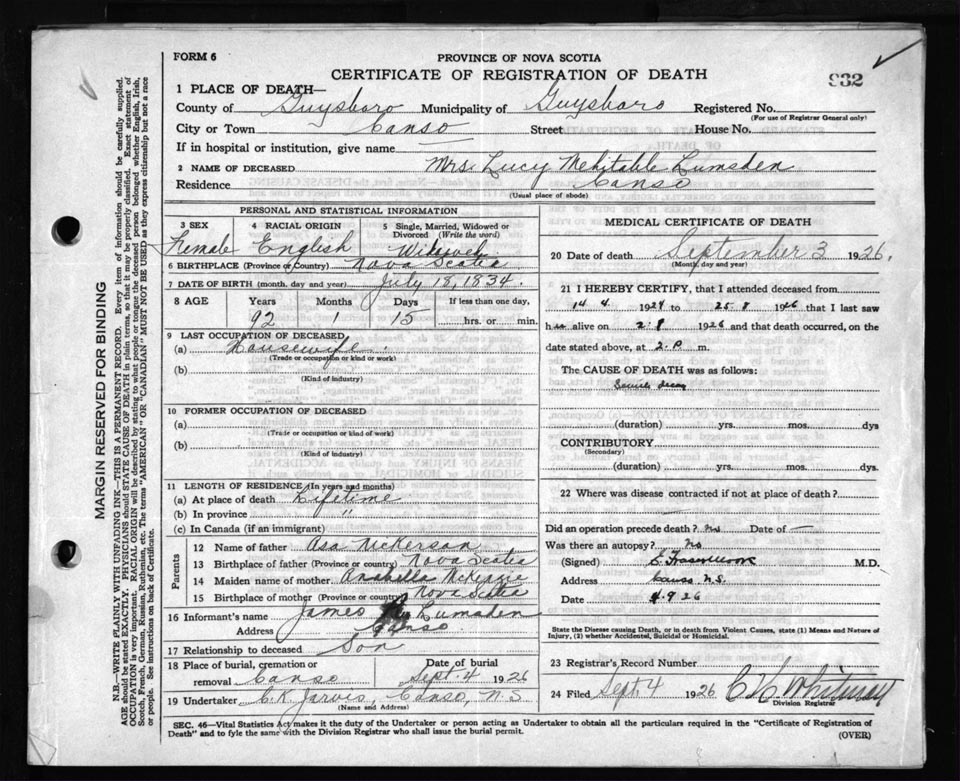 FORM 6
PROVINCE OF NOVA SCOTIA
CERTIFICATE OF REGISTRATION OF DEATH
932
1 PLACE OF DEATH—
County of Guysboro Municipality of Guysboro Registered No.
(For use of Registrar General only)
City or Town Canso Street House No.
If in hospital or institution, give name
2 NAME OF DECEASED Mrs. Lucy Mehitable Lumsden
Residence Canso
(Usual place of abode)
PERSONAL AND STATISTICAL INFORMATION
3 SEX 4 RACIAL ORIGIN 5 Single, Married, Widowed or Divorced (Write the word)
Female English Widowed
6 BIRTHPLACE (Province or Country) Nova Scotia
7 DATE OF BIRTH (month, day and year) July 18, 1834.
8 AGE Years Months Days If less than one day,
92 1 15 hrs. or min.
9 LAST OCCUPATION OF DECEASED
(a) Housewife.
(Trade or occupation or kind or work)
(b)
(Kind of industry)
10 FORMER OCCUPATION OF DECEASED
(a)
(Trade or occupation or kind of work)
(b)
(Kind of industry)
11 LENGTH OF RESIDENCE (In years and months)
(a) At place of death Lifetime
(b) In province "
(c) In Canada (if an immigrant)
Parents
12 Name of father Asa Nickerson
13 Birthplace of father (Province or country) Nova Scotia
14 Maiden name of mother Anabella McKenzie
15 Birthplace of mother (Province or country) Nova Scotia
16 Informant's name James Lumsden
Address Canso.
17 Relationship to deceased Son
18 Place of burial, cremation or removal Canso Date of burial Sept. 4 1926
19 Undertaker C.K. Jarvis, Canso, N.S
(Name and Address)
MEDICAL CERTIFICATE OF DEATH
20 Date of death September 3 1926.
(Month, day and year)
21 I HEREBY CERTIFY, that I attended deceased from
14 4 1924 to 25.8 1926 that I last saw
h alive on 2.8 1926 and that death occurred, on the
date stated above, at 2.P. m.
The CAUSE OF DEATH was as follows:
Senile decay
(duration) yrs. mos. dys
CONTRIBUTORY
(Secondary)
(duration) yrs. mos. dys.
22 Where was disease contracted if not at place of death?
Did an operation precede death? No Date of —
Was there an autopsy? No
(Signed) M.D.
Address Canso N.S.
Date 4.9 26
State the Disease causing Death, or in death from Violent Causes, state (1) Means and Nature of
Injury, (2) whether Accidental, Suicidal or Homicidal.
23 Registrar's Record Number
24 Filed Sept. 4 1926
Division Registrar
SEC. 46—Vital Statistics Act makes it the duty of the Undertaker or person acting as Undertaker to obtain all the particulars required in the "Certificate of Registration of
Death" and to fyle the same with the Division Registrar who shall issue the burial permit.
(OVER)
MARGIN RESERVED FOR BINDING
N.B.—WRITE PLAINLY WITH UNFADING INK—THIS IS A PERMANENT RECORD. Every item of information should be carefully supplied.
AGE should be stated EXACTLY. PHYSICIANS should STATE CAUSE OF DEATH in plain terms, so that it may be properly classified. Exact statement of
OCCUPATION is very important. RACIAL ORIGIN will be described by stating to what people or tongue the deceased person belonged whether English, Irish,
Scotch, French, German, Russian, Ruthenian, etc. The terms "AMERICAN" OR "CANADIAN" MUST NOT BE USED as they express citizenship but not a race
or people. See instructions on back of Certificate.